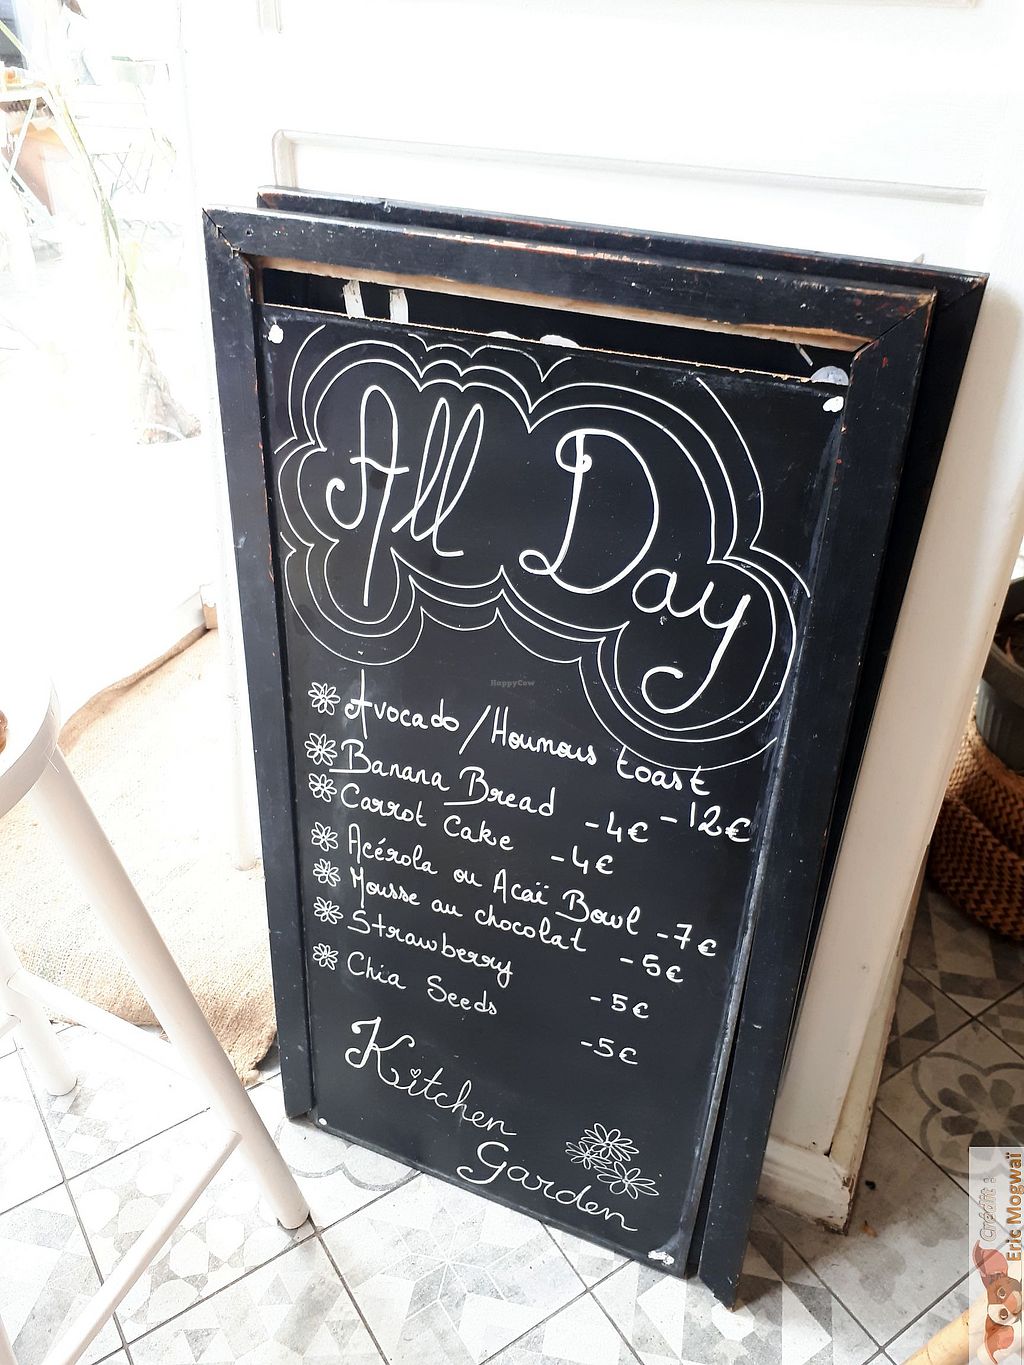 All Day
Avocado / Houmous toast -12€
Banana Bread -4€
Carrot Cake -4€
Acérola ou Açaï Bowl -7€
Mousse au chocolat -5€
Strawberry -5€
Chia Seeds -5€
Kitchen
Garden
HappyCow
Crédit :
Eric Mogwaï